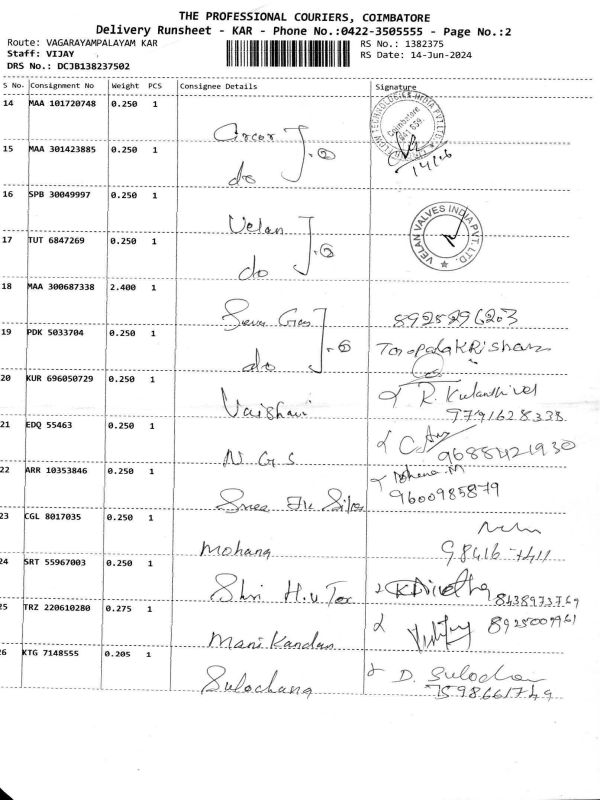 THE PROFESSIONAL COURIERS, COIMBATORE
Delivery Runsheet - KAR - Phone No.:0422-3505555 - Page No.:2
Route: VAGARAYAMPALAYAM KAR RS No.: 1382375
Staff: VIJAY RS Date: 14-Jun-2024
DRS No.: DCJB138237502
S No. Consignment No Weight PCS Consignee Details Signature
14 MAA 101720748 0.250 1
15 MAA 301423885 0.250 1 do 14/6
16 SPB 30049997 0.250 1 Velan VELAN VALVES INDIA PVT. LTD.
17 TUT 6847269 0.250 1 do
18 MAA 300687338 2.400 1 8925296203
19 PDK 5033704 0.250 1 do
20 KUR 696050729 0.250 1 Vaishnavi R. Kulanthivel
9791628338
21 EDQ 55463 0.250 1 N G S 9688421930
22 ARR 10353846 0.250 1 Mohana.M
9600985879
23 CGL 8017035 0.250 1 Mohana 98416-7411
24 SRT 55967003 0.250 1 Shri H.V Tex 8438973769
25 TRZ 220610280 0.275 1 Manikandan 8925009961
26 KTG 7148555 0.205 1 Sulochana D. Sulochan
7598661749